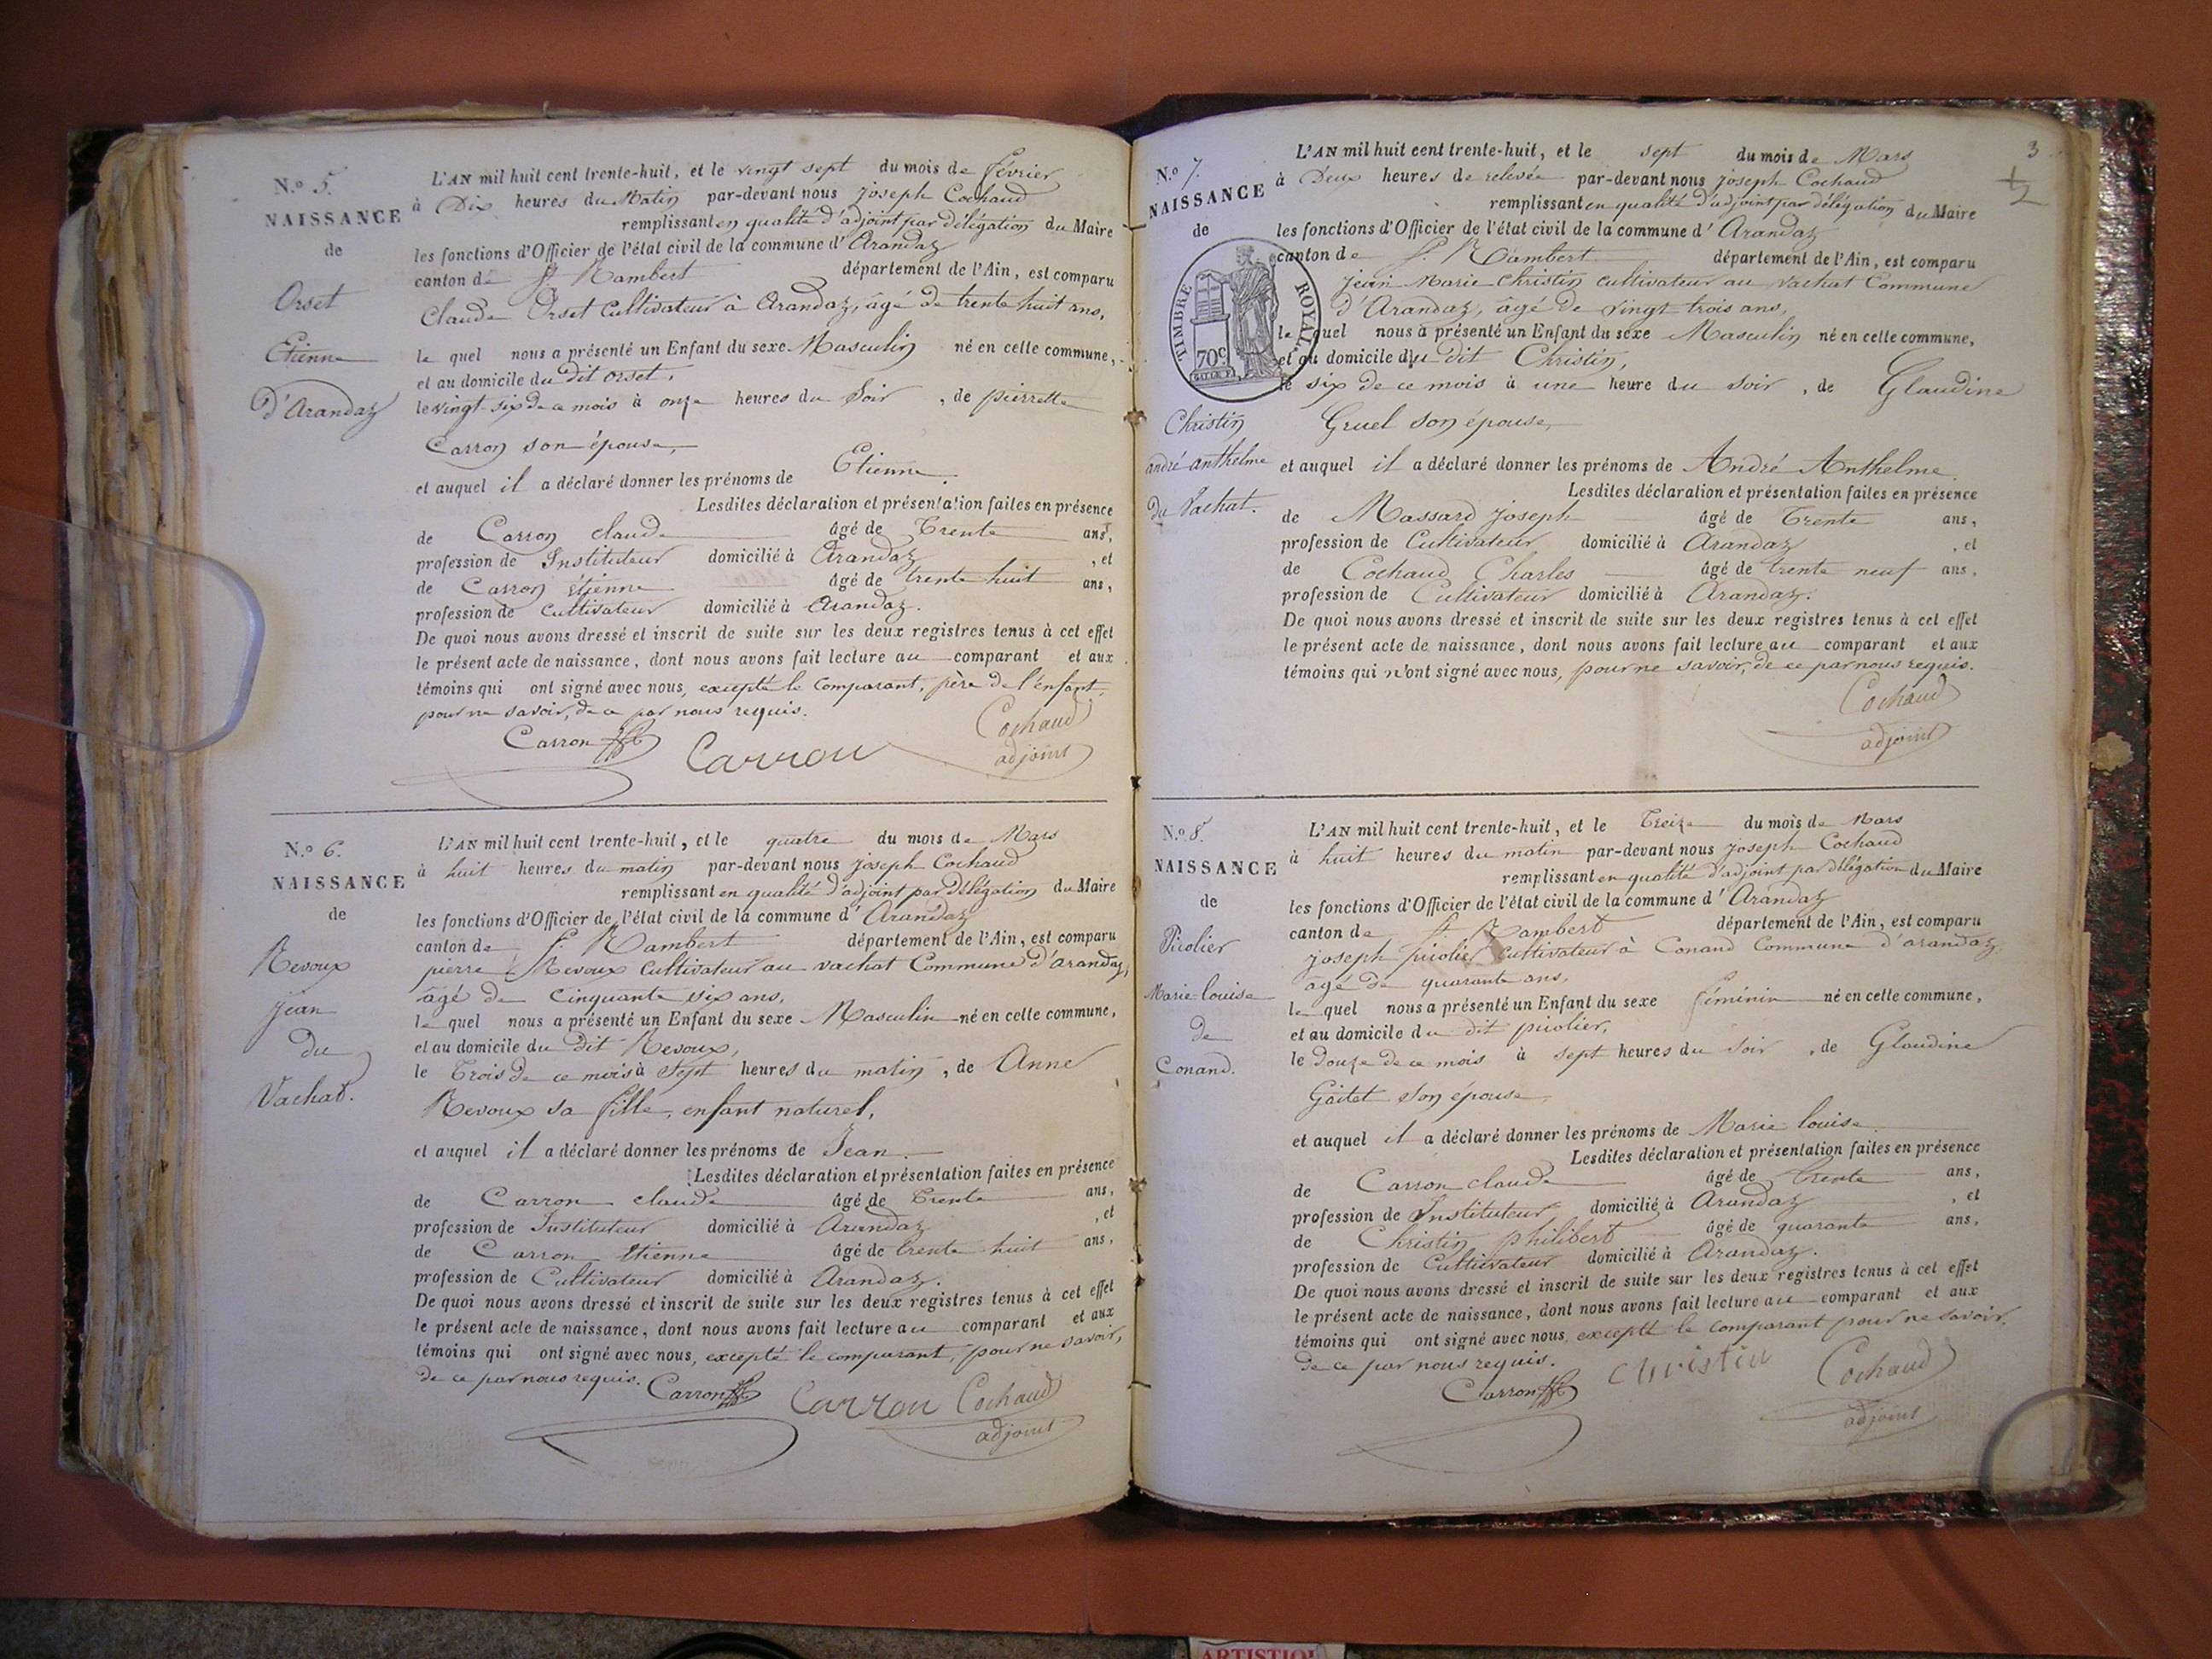 N.o 5.
NAISSANCE
de
Orset
Etienne
D'Arandaz
L'AN mil huit cent trente-huit, et le vingt sept du mois de février
à Dix heures du Matin par-devant nous joseph Cochaud
remplissant en qualité d'adjoint par délégation du Maire
les fonctions d'Officier de l'état civil de la commune d'Arandaz
canton de St Rambert département de l'Ain, est comparu
Claude Orset Cultivateur à Arandaz, âgé de trente huit ans,
le quel nous a présenté un Enfant du sexe Masculin né en cette commune,
et au domicile du dit orset,
le vingt-six de ce mois à onze heures du Soir, de pierrette
Carron son épouse,
et auquel il a déclaré donner les prénoms de Etienne.
Lesdites déclaration et présentation faites en présence
de Carron claude âgé de Trente ans,
profession de Instituteur domicilié à Arandaz, et
de Carron étienne âgé de trente huit ans,
profession de Cultivateur domicilié à Arandaz.
De quoi nous avons dressé et inscrit de suite sur les deux registres tenus à cet effet
le présent acte de naissance, dont nous avons fait lecture au comparant et aux
témoins qui ont signé avec nous, excepté le Comparant, père de l'enfant,
pour ne savoir, de ce par nous requis.
Carron Carron Cochaud
adjoint
N.o 6.
NAISSANCE
de
Revoux
jean
du
Vachat.
L'AN mil huit cent trente-huit, et le quatre du mois de Mars
à huit heures du matin par-devant nous joseph Cochaud
remplissant en qualité d'adjoint par Délégation du Maire
les fonctions d'Officier de l'état civil de la commune d'Arandaz
canton de St Rambert département de l'Ain, est comparu
pierre Revoux Cultivateur au vachat Commune d'arandaz,
âgé de Cinquante six ans,
le quel nous a présenté un Enfant du sexe Masculin né en cette commune,
et au domicile du Dit Revoux,
le Trois de ce mois à Sept heures du matin, de Anne
Revoux sa fille, enfant naturel,
et auquel il a déclaré donner les prénoms de Jean.
Lesdites déclaration et présentation faites en présence
de Carron claude âgé de Trente ans,
profession de Instituteur domicilié à Arandaz, et
de Carron Etienne âgé de trente huit ans,
profession de Cultivateur domicilié à Arandaz.
De quoi nous avons dressé et inscrit de suite sur les deux registres tenus à cet effet
le présent acte de naissance, dont nous avons fait lecture au comparant et aux
témoins qui ont signé avec nous, excepté le comparant, pour ne savoir,
de ce par nous requis. Carron Carron Cochaud
adjoint
3
N.o 7.
NAISSANCE
de
TIMBRE ROYAL
70c
Christin
andré anthelme
du Vachat.
L'AN mil huit cent trente-huit, et le sept du mois de Mars
à Deux heures de relevée par-devant nous joseph Cochaud
remplissant en qualité d'adjoint par délégation du Maire
les fonctions d'Officier de l'état civil de la commune d'Arandaz
canton de St Rambert département de l'Ain, est comparu
jean Marie Christin cultivateur au vachat Commune
d'Arandaz, âgé de vingt trois ans,
le quel nous a présenté un Enfant du sexe Masculin né en cette commune,
et au domicile du dit Christin,
le six de ce mois à une heure du soir, de Glaudine
Gruel son épouse,
et auquel il a déclaré donner les prénoms de André Anthelme
Lesdites déclaration et présentation faites en présence
de Massard joseph âgé de Trente ans,
profession de Cultivateur domicilié à Arandaz, et
de Cochaud Charles âgé de trente neuf ans,
profession de Cultivateur domicilié à Arandaz.
De quoi nous avons dressé et inscrit de suite sur les deux registres tenus à cet effet
le présent acte de naissance, dont nous avons fait lecture au comparant et aux
témoins qui n'ont signé avec nous, pour ne savoir, de ce par nous requis.
Cochaud
adjoint
N.o 8.
NAISSANCE
de
Picolier
Marie louise
de
Conand.
L'AN mil huit cent trente-huit, et le Treize du mois de Mars
à huit heures du matin par-devant nous joseph Cochaud
remplissant en qualité d'adjoint par délégation du Maire
les fonctions d'Officier de l'état civil de la commune d'Arandaz
canton de St Rambert département de l'Ain, est comparu
joseph picolier cultivateur à Conand Commune d'arandaz,
âgé de quarante ans,
le quel nous a présenté un Enfant du sexe féminin né en cette commune,
et au domicile du dit picolier,
le Douze de ce mois à sept heures du soir, de Glaudine
Gaitet son épouse,
et auquel il a déclaré donner les prénoms de Marie louise
Lesdites déclaration et présentation faites en présence
de Carron claude âgé de Trente ans,
profession de Instituteur domicilié à Arandaz, et
de Christin philibert âgé de quarante ans,
profession de Cultivateur domicilié à Arandaz.
De quoi nous avons dressé et inscrit de suite sur les deux registres tenus à cet effet
le présent acte de naissance, dont nous avons fait lecture au comparant et aux
témoins qui ont signé avec nous, excepté le comparant pour ne savoir,
de ce par nous requis. Christin Cochaud
Carron adjoint